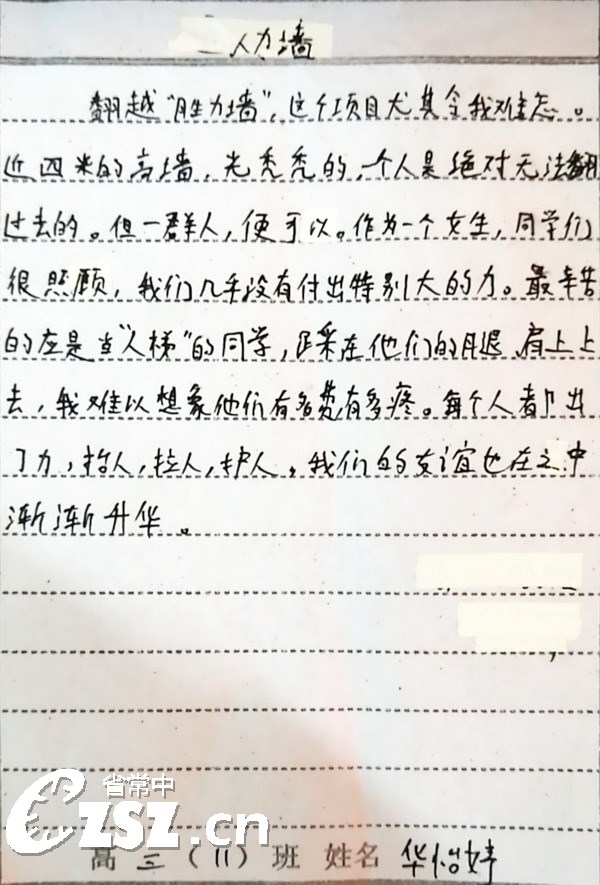 人力墙
翻越“胜力墙”，这个项目尤其令我难忘。
近四米的高墙，光秃秃的，一个人是绝对无法翻
过去的。但一群人，便可以。作为一个女生，同学们
很照顾，我们几乎没有付出特别大的力。最辛苦
的应是当“人梯”的同学，踩在他们的腿、肩上上
去，我难以想象他们有多费有多疼。每个人都出
了力，抬人，拉人，护人。我们的友谊也在之中
渐渐升华。
省常中
czsz.cn
高三(11)班 姓名 华怡婷